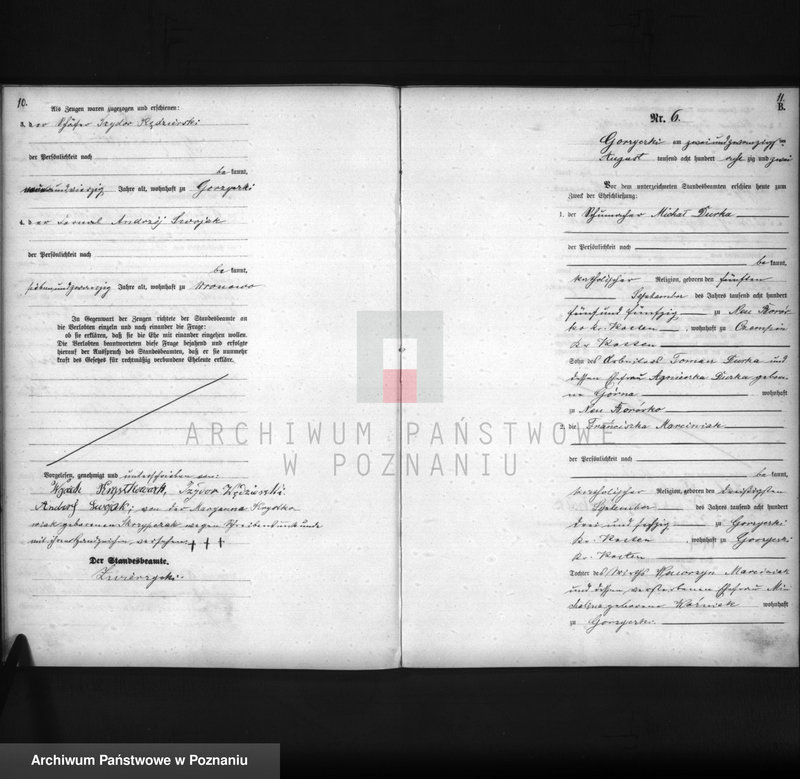 10.
Als Zeugen waren zugezogen und erschienen:
3. der Schäfer Izydor Kędziorski
der Persönlichkeit nach
bekannt,
neunundvierzig Jahre alt, wohnhaft zu Gorzyczki
4. der Fornal Andrzéj Szwojak
der Persönlichkeit nach
bekannt,
siebenundzwanzig Jahre alt, wohnhaft zu Wronowo
In Gegenwart der Zeugen richtete der Standesbeamte an
die Verlobten einzeln und nach einander die Frage:
ob sie erklären, daß sie die Ehe mit einander eingehen wollen.
Die Verlobten beantworteten diese Frage bejahend und erfolgte
hierauf der Ausspruch des Standesbeamten, daß er sie nunmehr
kraft des Gesetzes für rechtmäßig verbundene Eheleute erkläre.
Vorgelesen, genehmigt und unterschrieben von:
Izydor
von der Maryanna
geborenen Skrzypczak wegen Schreibensunkunde
mit ihrem Handzeichen versehen. +++
Der Standesbeamte.
11.
B.
Nr. 6.
Gorzyczki am zweiundzwanzigsten
August tausend acht hundert acht zig und zwei
Vor dem unterzeichneten Standesbeamten erschien heute zum
Zweck der Eheschließung:
1. der Schumacher Michał Durka
der Persönlichkeit nach
bekannt,
katholischer Religion, geboren den fünften
September des Jahres tausend acht hundert
fünf und fünfzig zu Neu Borów
ko kr. Kosten, wohnhaft zu Czempin
kr. Kosten
Sohn des Arbeiters Toman Durka und
dessen Ehefrau Agnieszka Durka gebore-
ne Górna wohnhaft
zu Neu Borówko
2. die Franciszka Marciniak
der Persönlichkeit nach
bekannt,
katholischer Religion, geboren den dreißigsten
September des Jahres tausend acht hundert
drei und sechzig zu Gorzyczki
kr. Kosten, wohnhaft zu Gorzyczki
kr. Kosten
Tochter des Wirths Wawrzyn Marciniak
und dessen verstorbenen Ehefrau Mi-
chalina geborene Woźniak wohnhaft
zu Gorzyczki.
ARCHIWUM PAŃSTWOWE
W POZNANIU
Archiwum Państwowe w Poznaniu